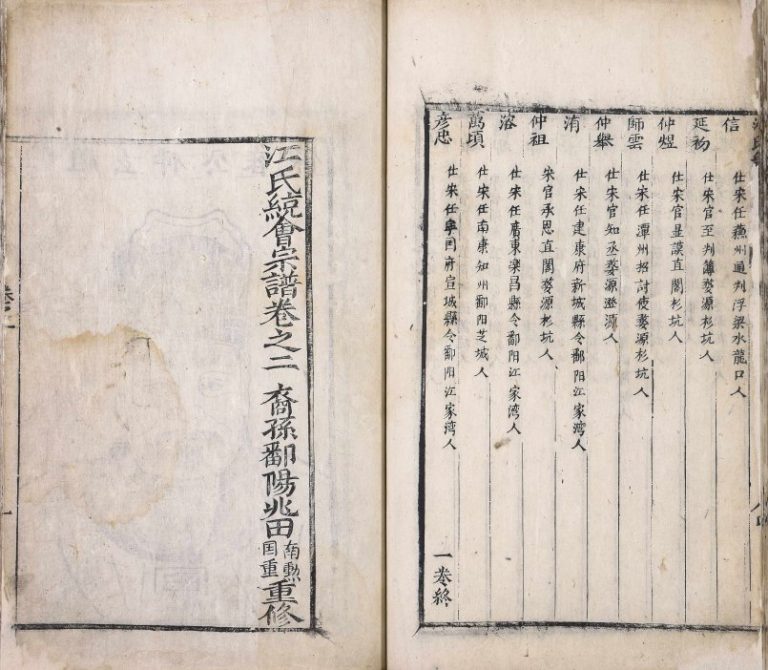 信 仕宋任燕州通判浮梁水龍口人
延初 仕宋官至判簿婺源杉坑人
仲煜 仕宋官呈謨直閣杉坑人
師雲 仕宋任潭州招討使婺源杉坑人
仲舉 仕宋官知丞婺源澄源人
洧 仕宋任建康府新城縣令鄱阳江家湾人
仲祖 宋官承恩直閣婺源杉坑人
溶 仕宋任廣東樂昌縣令鄱阳江家湾人
萬頃 仕宋任南康知州鄱阳芝城人
彥忠 仕宋任寧囯府宣城縣令鄱阳江家湾人
一卷終
江氏統會宗譜卷之二 裔孫鄱陽兆田南勲囯重重修